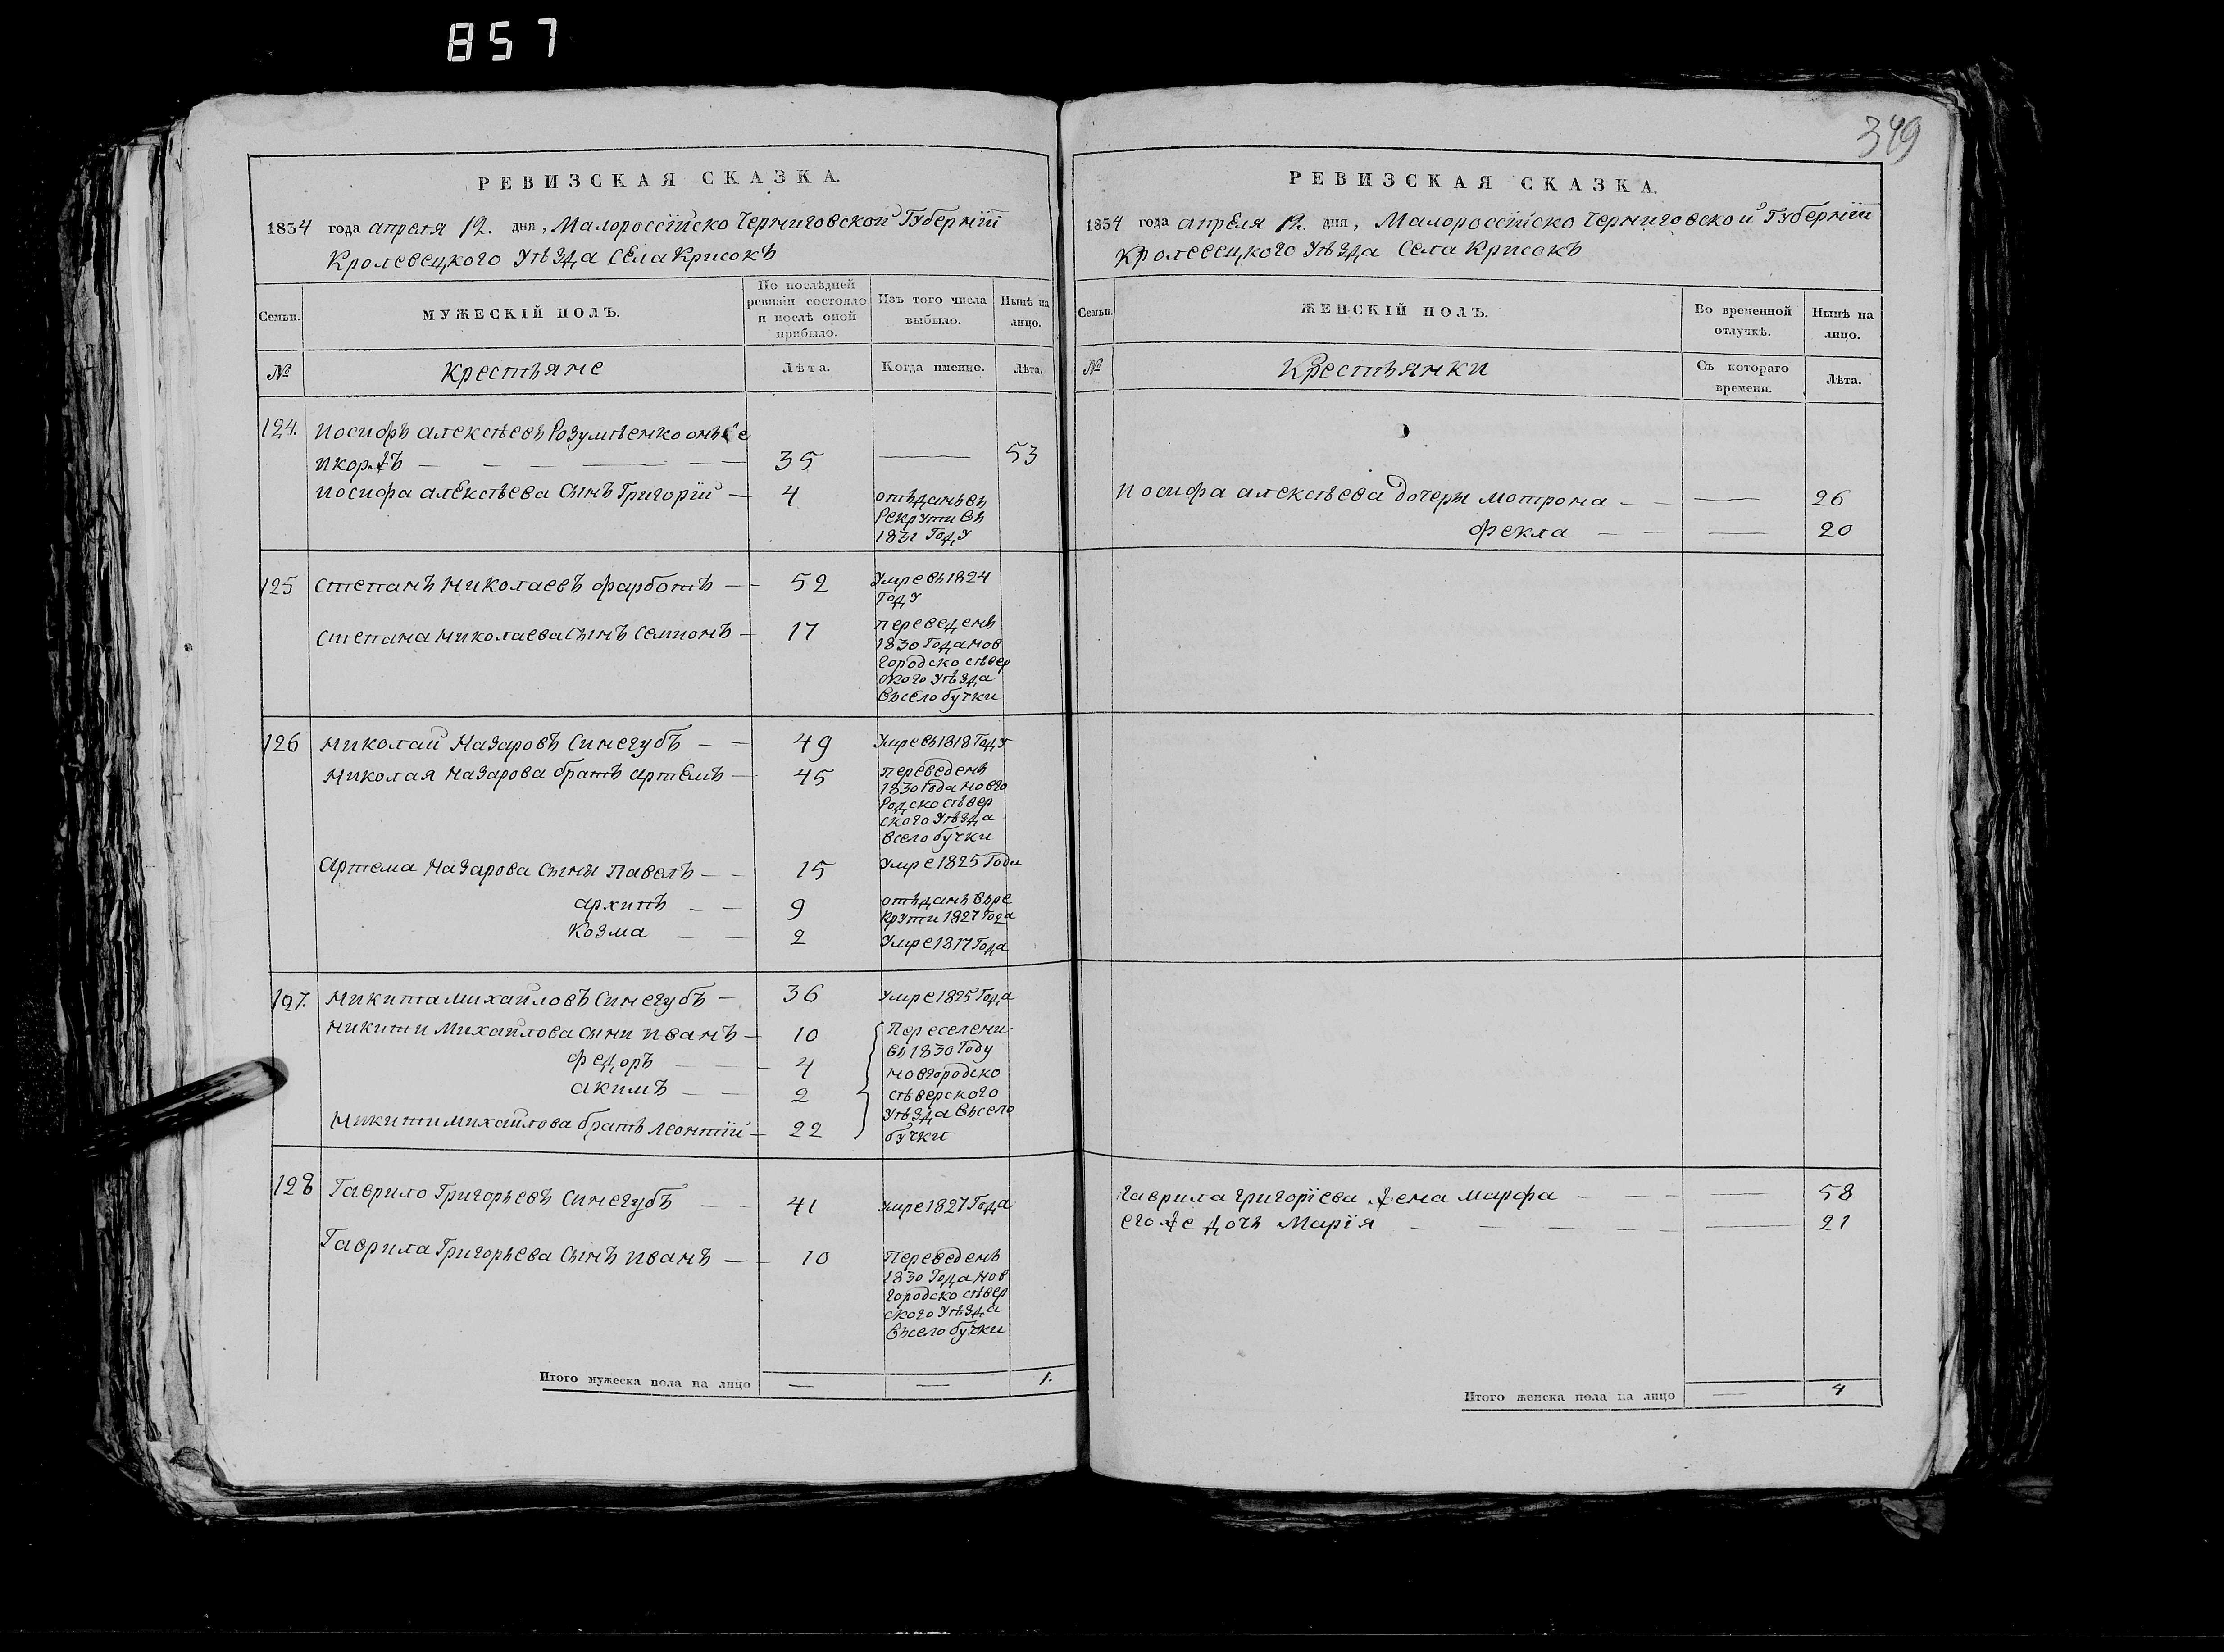 857
349
РЕВИЗСКАЯ СКАЗКА.
1834 года апреля 12. дня, Малороссійско Черниговской Губерніи
Кролевецкого Уѣзда Села Крисокъ
Семьи.
МУЖЕСКІЙ ПОЛЪ.
По послѣдней ревизіи состояло и послѣ оной прибыло.
Изъ того числа выбыло.
Нынѣ на лицо.
№
Крестьяне
Лѣта.
Когда именно.
Лѣта.
124. Иосифъ алексѣевъ Розумѣенко онъ же
Икоржъ — 35 — 53
Иосифа алексѣева Сынъ Григорій — 4 отъданъ въ
Рекрути въ
1831 Году
125 Степанъ Николаевъ фарботъ — 52 Умре въ 1824
Году
Степана Николаева Сынъ Семионъ — 17 переведенъ
1830 Года Нов
городско сѣвер
ского Уѣзда
въ село бучки
126 Николай Назаровъ Синегубъ — 49 Умре въ 1818 Году
Николая Назарова братъ артемъ — 45 переведенъ
1830 Года Новго
Родско сѣвер
ского Уѣзда
всело бучки
Артема Назарова Сыны Павелъ — 15 Умре 1825 Года
архипъ — 9 отъданъ въ ре
крути 1827 Года
Козма — 2 Умре 1817 Года
127. Никита Михайловъ Синегубъ — 36 умре 1825 Года
Никити Михайлова Сини Иванъ — 10 Переселени
въ 1830 Году
Федоръ — 4 Новгородско
акимъ — 2 сѣверского
Уѣзда въ село
Никити Михайлова братъ Леонтій — 22 бучки
128 Гаврило Григорьевъ Синегубъ — 41 умре 1827 Года
Гаврила Григорьева Сынъ Иванъ — 10 Переведенъ
1830 Года Нов
городско сѣвер
ского Уѣзда
въ село бучки
Итого мужеска пола на лицо — — 1.
РЕВИЗСКАЯ СКАЗКА.
1834 года апреля 12. дня, Малороссійско Черниговской Губерніи
Кролевецкого Уѣзда Села Крисокъ
Семьи.
ЖЕНСКІЙ ПОЛЪ.
Во временной отлучкѣ.
Нынѣ на лицо.
№
Крестьянки
Съ котораго времени.
Лѣта.
Иосифа алексѣева дочеры Мотрона — — 26
Фекла — — 20
Гаврила григоріева жена Марфа — — 58
его же дочь Марія — — 21
Итого женска пола на лицо — 4